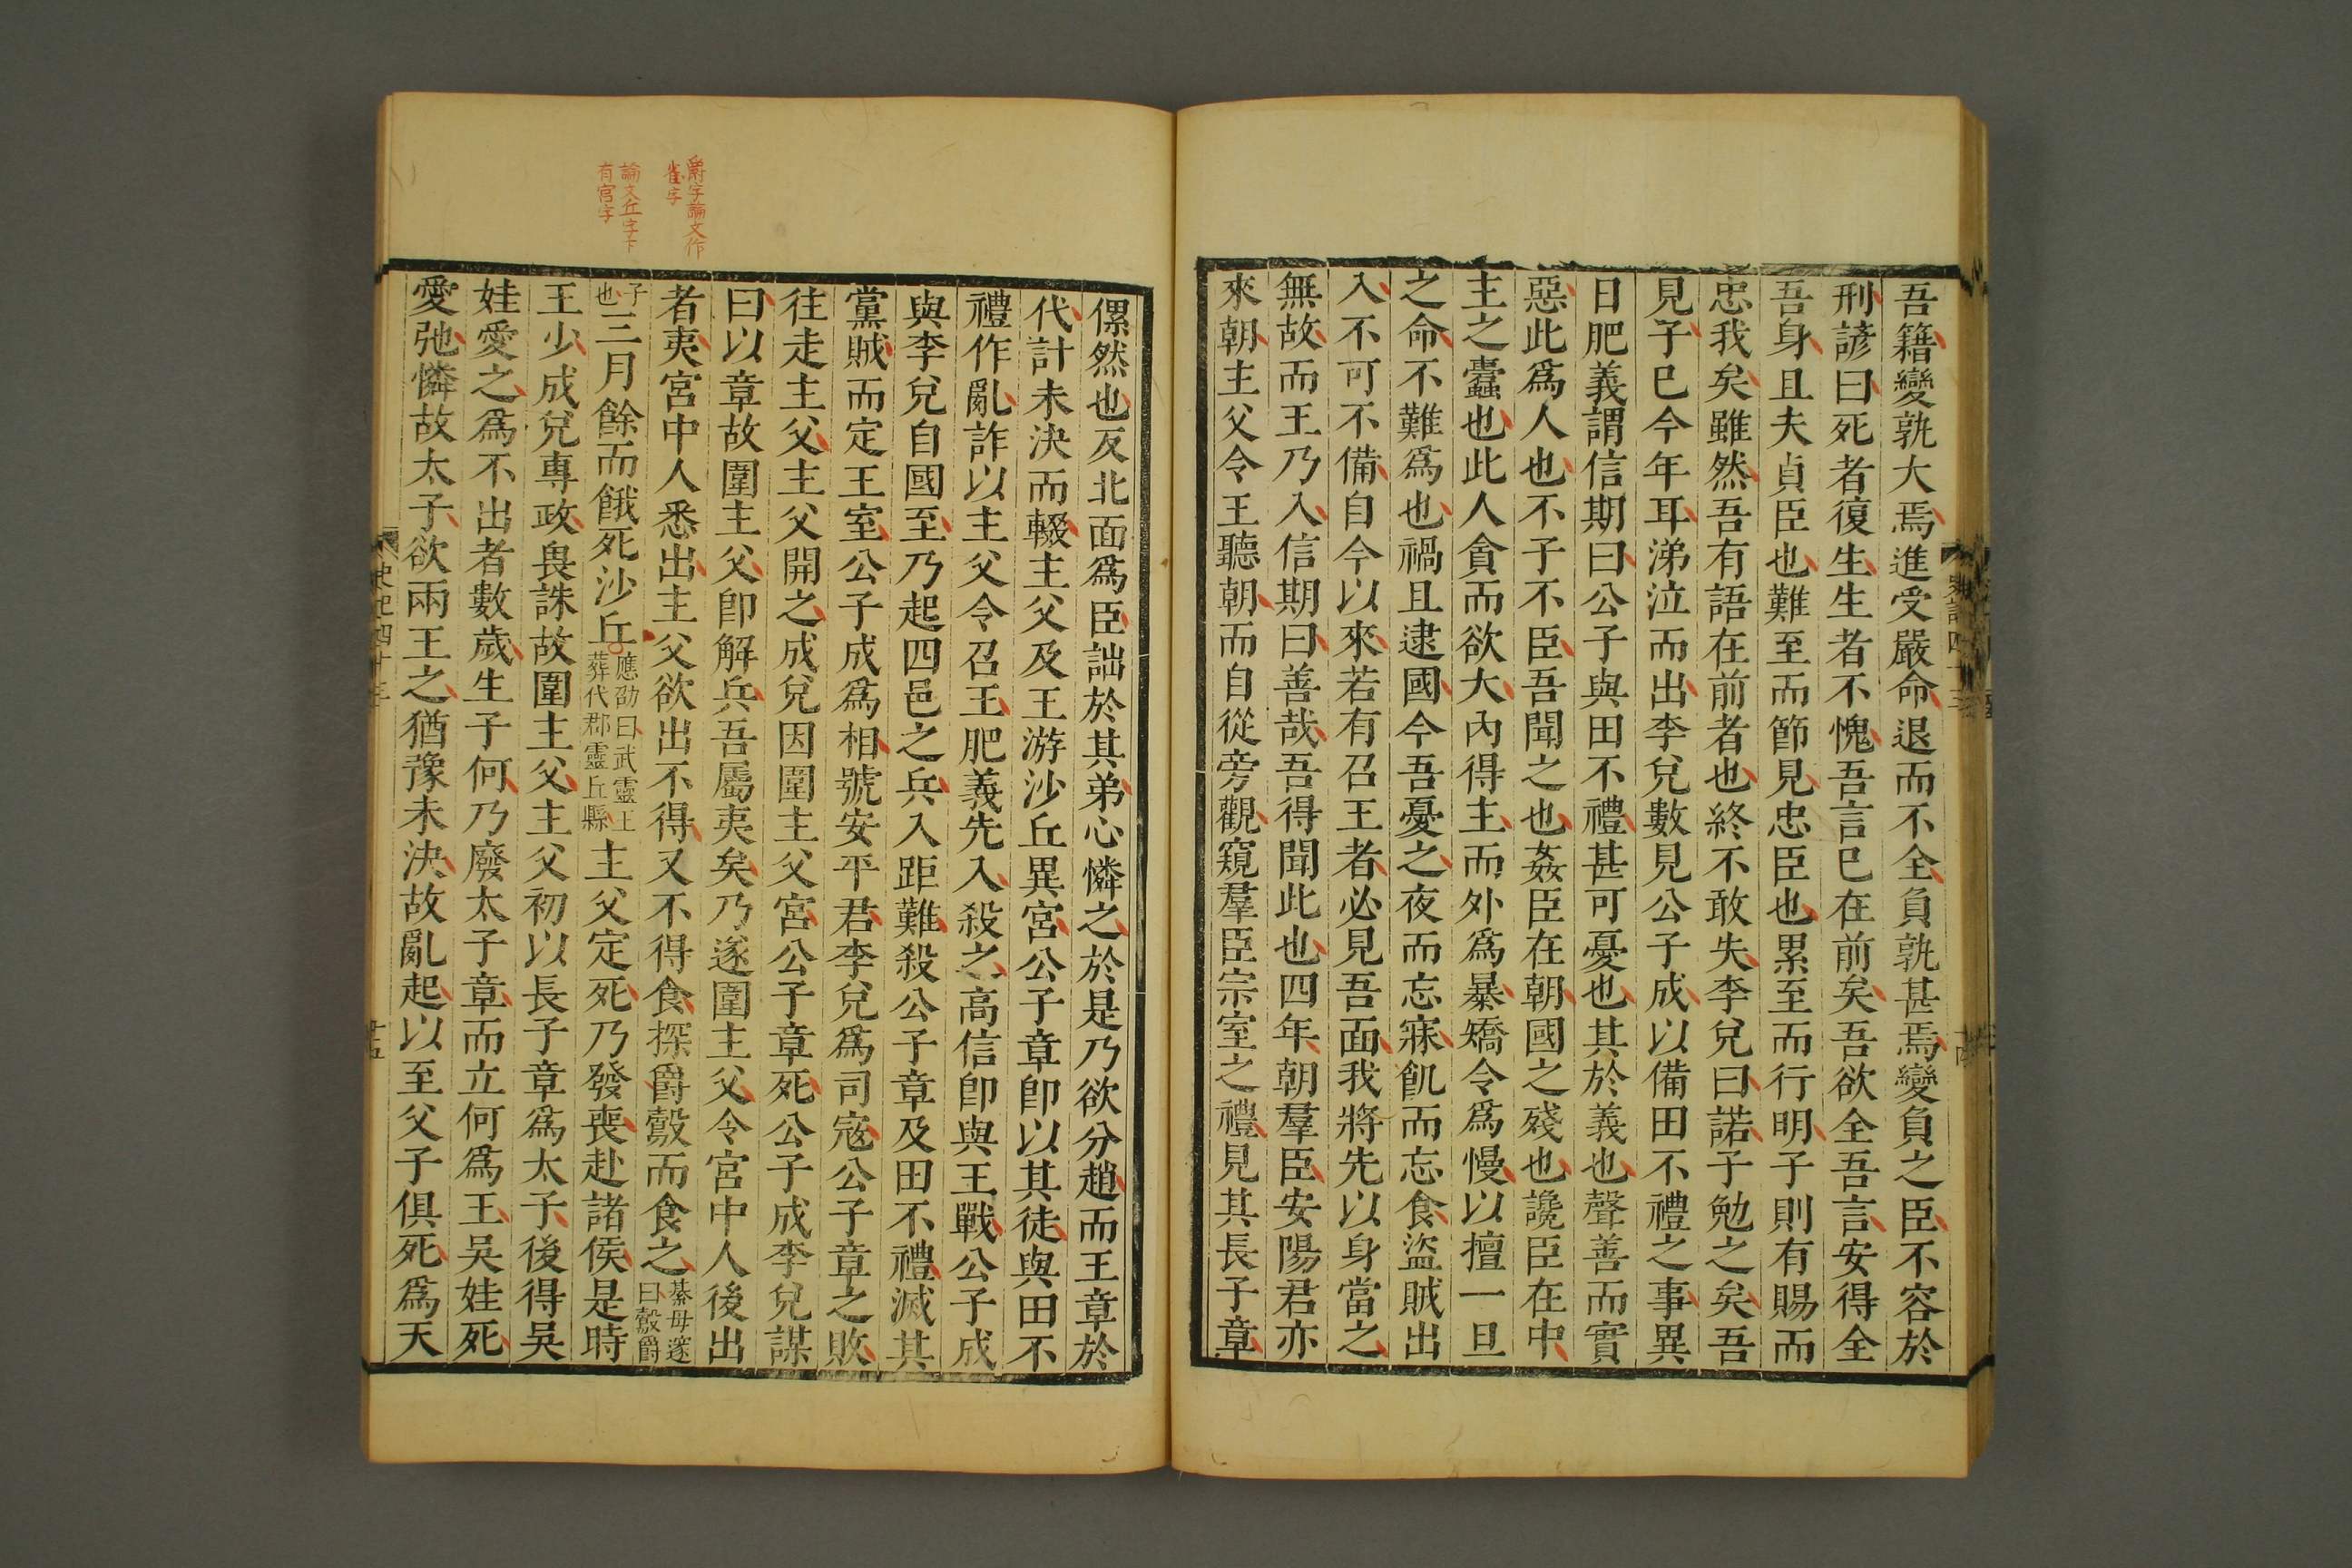 吾籍變孰大焉進受嚴命退而不全負孰甚焉變負之臣不容於
刑諺曰死者復生生者不愧吾言已在前矣吾欲全吾言安得全
吾身且夫貞臣也難至而節見忠臣也累至而行明子則有賜而
忠我矣雖然吾有語在前者也終不敢失李兌曰諾子勉之矣吾
見子已今年耳涕泣而出李兌數見公子成以備田不禮之事異
日肥義謂信期曰公子與田不禮甚可憂也其於義也聲善而實
惡此爲人也不子不臣吾聞之也姦臣在朝國之殘也讒臣在中
主之蠹也此人貪而欲大內得主而外爲暴矯令爲慢以擅一旦
之命不難爲也禍且逮國今吾憂之夜而忘寐飢而忘食盜賊出
入不可不備自今以來若有召王者必見吾面我將先以身當之
無故而王乃入信期曰善哉吾得聞此也四年朝羣臣安陽君亦
來朝主父令王聽朝而自從旁觀窺羣臣宗室之禮見其長子章
史記四十三
傫然也反北面爲臣詘於其弟心憐之於是乃欲分趙而王章於
代計未決而輟主父及王游沙丘異宮公子章卽以其徒與田不
禮作亂詐以主父令召王肥義先入殺之高信卽與王戰公子成
與李兌自國至乃起四邑之兵入距難殺公子章及田不禮滅其
黨賊而定王室公子成爲相號安平君李兌爲司寇公子章之敗
往走主父主父開之成兌因圍主父宮公子章死公子成李兌謀
曰以章故圍主父卽解兵吾屬夷矣乃遂圍主父令宮中人後出
者夷宮中人悉出主父欲出不得又不得食探爵鷇而食之綦毋邃曰鷇爵
子也三月餘而餓死沙丘應劭曰武靈王葬代郡靈丘縣主父定死乃發喪赴諸侯是時
王少成兌專政畏誅故圍主父主父初以長子章爲太子後得吳
娃愛之爲不出者數歲生子何乃廢太子章而立何爲王吳娃死
愛弛憐故太子欲兩王之猶豫未決故亂起以至父子俱死爲天
史記四十三
十五
爵字論文作
雀字
論文丘字下
有宮字